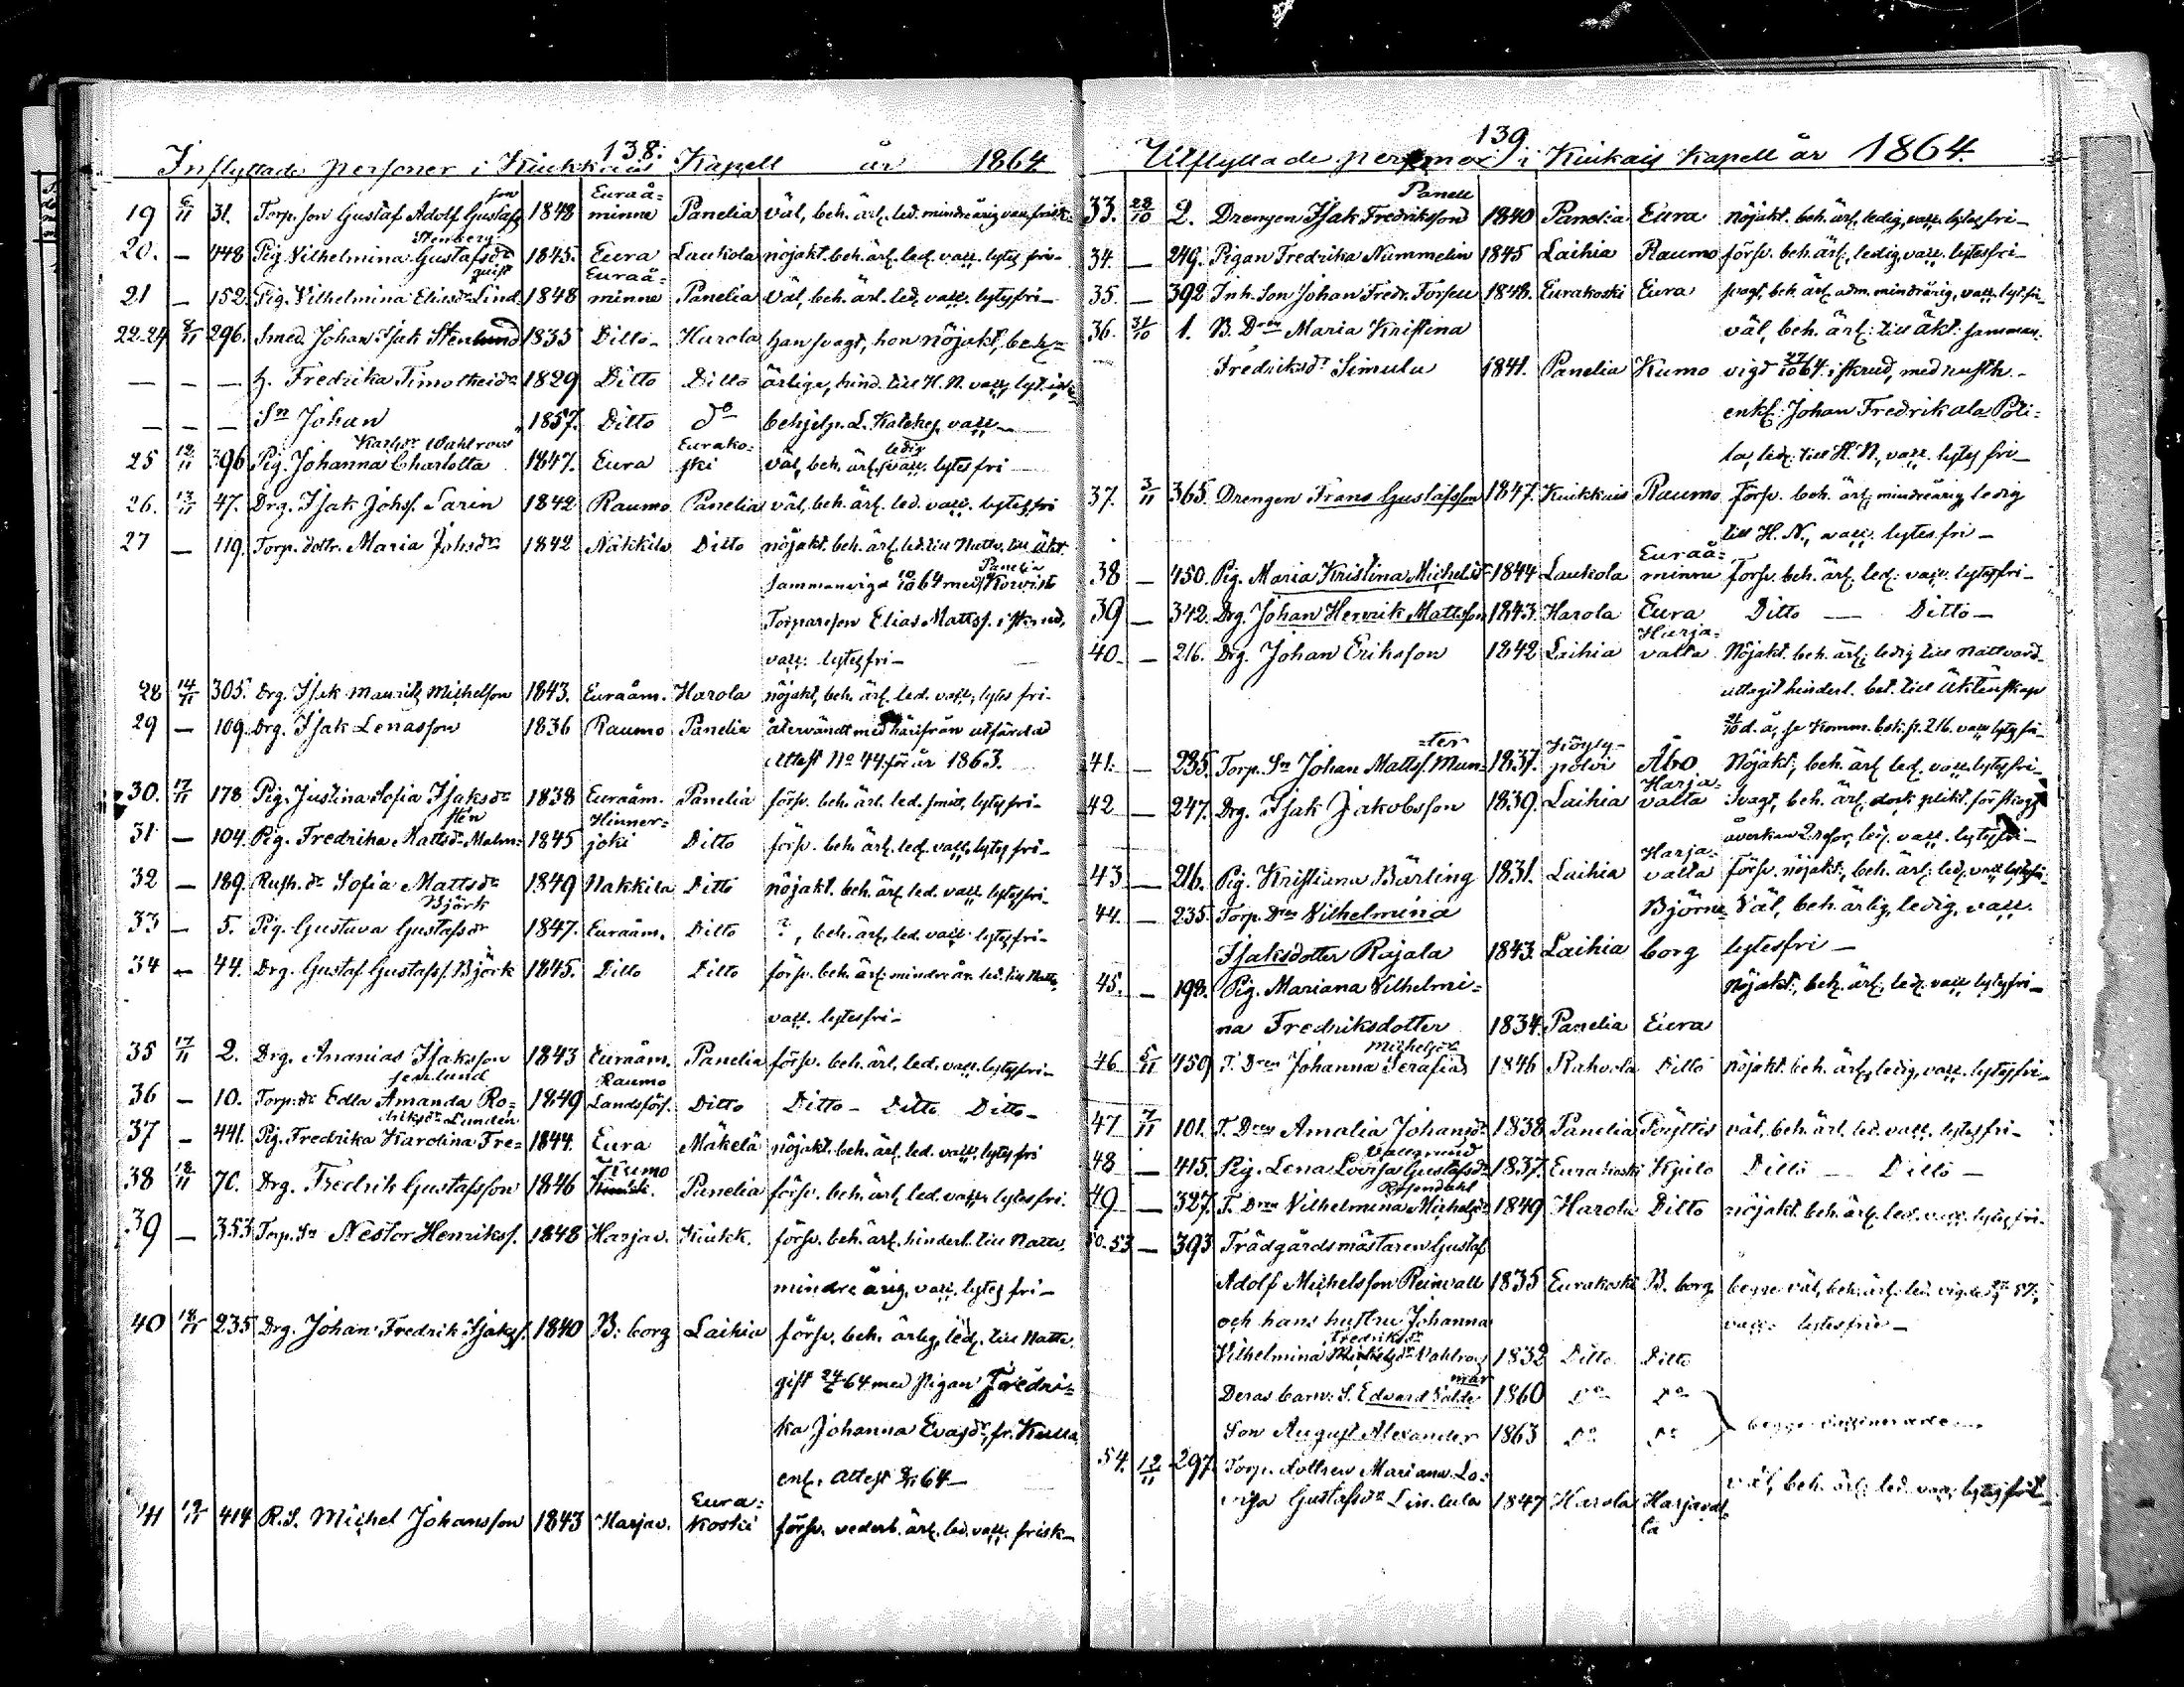 138.
Inflyttade personer i Kiukkais Kapell år 1864
19 6/11 31. Torp. son Gustaf Adolf Gustafsson 1848 Euraåminne Panelia väl, beh. ärl. led. mindreårig vacc. frisk
20. — 448 Pig. Vilhelmina Gustafsdr Stenberg 1845. Eura Laukola nöjakt. beh. ärl. led. vacc. lytes fri
21 — 152. Pig. Vilhelmina Eliasdr Lindquist 1848 Euraåminne Panelia Väl, beh. ärl. led. vacc. lytesfri
22-24 8/11 296. Smed. Johan Isak Stenlund 1835 Ditto Harola han svagt, hon nöjakt, beh.
— — — h. Fredrika Timotheidr 1829 Ditto Ditto ärliga, hind. till H. N. vacc. lyt.
— — — Sn Johan 1857. Ditto do behjelp. L. Katekes, vacc.
25 12/11 396 Pig. Johanna Charlotta Karlsdr Wahlroos 1847. Eura Eurakoski väl, beh. ärl. ledig vacc. lytesfri
26. 13/11 47. Drg. Isak Johs. Sarin 1842 Raumo Panelia väl, beh. ärl. led. vacc. lytesfri
27 — 119. Torp. dottr. Maria Johsdr 1842 Nakkila Ditto nöjakt. beh. ärl. led. till Nattv. till äkt.
Sammanvigd 10/10 64 med Panelia Korvisto
Torpareson Elias Matts. i skrud,
vacc. lytesfri
28 14/11 305. Drg. Isak Mauritz Michelson 1843. Euraåm. Harola nöjakt, beh. ärl. led. vacc. lytes fri
29 — 109. Drg. Isak Lenasson 1836 Raumo Panelia återvändt med härifrån utfärdad
Attest No 44 för år 1863.
30. 17/11 178 Pig. Justina Sofia Isaksdr 1838 Euraåm. Panelia försv. beh. ärl. led. smitt. lytesfri
31 — 104. Pig. Fredrika Mattsdr Malmstén 1845 Hinnerjoki Ditto försv. beh. ärl. led. vacc. lytesfri
32 — 189. Rusth. dr Sofia Mattsdr 1849 Nakkila Ditto nöjakt. beh. ärl. led. vacc. lytesfri
33 — 5. Pig. Gustava Gustafsdr Björk 1847. Euraåm. Ditto ?, beh. ärl. led. vacc. lytesfri
34 — 44. Drg. Gustaf Gustafss. Björk 1845. Ditto Ditto försv. beh. ärl. mindre år. led. till Nattv.
vacc. lytesfri
35 17/11 2. Drg. Ananias Isaksson 1843 Euraåm. Panelia försv. beh. ärl. led. vacc. lytesfri
36 — 10. Torp. dr Edla Amanda Rosenlund 1849 Raumo Landsförs. Ditto Ditto Ditto Ditto
37 — 441. Pig. Fredrika Karolina Fredriksdr Lundén 1844. Eura Mäkelä nöjakt. beh. ärl. led. vacc. lytesfri
38 18/11 70. Drg. Fredrik Gustafsson 1846 Kumo Panelia försv. beh. ärl. led. vacc. lytesfri.
39 — 353 Torp. Sn Nestor Henrikss. 1848 Harjav. Kiukk. försv. beh. ärl. hinderl. till Nattv.
mindre årig, vacc. lytesfri
40 18/11 235 Drg. Johan Fredrik Isakss. 1840 B:borg Laihia försv. beh. ärlig, led. till Nattv.
gift 64 med Pigan Fredrika
Johanna Evasdr, fr. Kulla,
enl. attest 64
41 19/11 414 R.S. Michel Johansson 1843 Harjav. Eurakoski försv. vederb. ärl. led. vacc. frisk
139
Utflyttade personer i Kiukais Kapell år 1864.
33. 28/10 2. Drengen Isak Fredriksson Panell 1840 Panelia Eura nöjakt. beh. ärl. ledig, vacc. lytesfri
34. — 249. Pigan Fredrika Nummelin 1845 Laihia Raumo försv. beh. ärl., ledig, vacc. lytesfri
35. — 392 Inh. Son Johan Fredr. Forsell 1848. Eurakoski Eura svagt, beh. ärl. adm. mindreårig, vacc. lyt.fri
36. 31/10 1. B. Drn Maria Kristina väl, beh. ärl. till äkt. samman-
Fredriksdr Simula 1841. Panelia Kumo vigd 64 i skrud, med rusth.
enkl. Johan Fredrik ala Pöli-
la, led. till H. N., vacc. lytesfri
37. 3/11 365. Drengen Frans Gustafsson 1847. Kiukkais Raumo Försv. beh. ärl. mindreårig, ledig
till H. N., vacc. lytesfri
38 — 450. Pig. Maria Kristina Michelsdr 1844 Laukola Euraåminne försv. beh. ärl. led. vacc. lytesfri
39 — 342. Drg. Johan Henrik Mattsson 1843. Harola Eura Ditto — Ditto
40. — 216. Drg. Johan Eriksson 1842 Laihia Harjavalta Nöjakt. beh. ärl., ledig till nattvard
uttagit hinderl. bet. till äktenskap
d. å, se Komm. bok. p. 216. vacc. lytesfri
41. — 235. Torp. Sn Johan Mattss. Munter 1837. Köylypolvi Åbo Nöjakt, beh. ärl. led. vacc. lytesfri
42 — 247. Drg. Isak Jakobsson 1839. Laihia Harjavalta Svagt, beh. ärl. dock plikt. för skogs
åverkan 2 resor, led. vacc. lytesfri
43 — 216. Pig. Kristiana Bärling 1831. Laihia Harjavalta försv. nöjakt., beh. ärl. led. vacc. lytesfri
44. — 235. Torp. Drn Vilhelmina Björne- Väl, beh. ärlig, ledig, vacc.
Isaksdotter Rajala 1843. Laihia borg lytesfri
45. — 198. Pig. Mariana Vilhelmi- nöjakt., beh. ärl. led. vacc. lytesfri
na Fredriksdotter 1834. Panelia Eura
46 5/11 459 T. Dren Johanna Serafia Michelsdr 1846 Rahvola Ditto nöjakt. beh. ärl. ledig, vacc. lytesfri
47 7/11 101. T. Dren Amalia Johansdr 1838 Panelia Pöyttis väl, beh. ärl. led. vacc. lytesfri
48 — 415. Pig. Lena Lovisa Gustafsdr 1837. Eurakoski Kjulo Ditto — Ditto
49 — 327. T. Dren Vilhelmina Michelsdr Rosendahl 1849 Harola Ditto nöjakt. beh. ärl. led. vacc. lytesfri
50-53 — 393 Trädgårdsmästaren Gustaf
Adolf Michelsson Reinvall 1835 Eurakoski B. borg begge väl, beh. ärl. led. vigde 57,
och hans hustru Johanna vacc. lytesfria
Vilhelmina Fredriksdr Vahlroos 1832 Ditto Ditto
Deras barn: S. Edvard Valdemar 1860 Do Do
Son August Alexander 1863 Do Do begge vaccinerade
54. 12/11 297. Torp. dottren Mariana Lo- väl, beh. ärl. led. vacc. lytesfri
visa Gustafsdr Linlula 1847 Harola Harjavalta